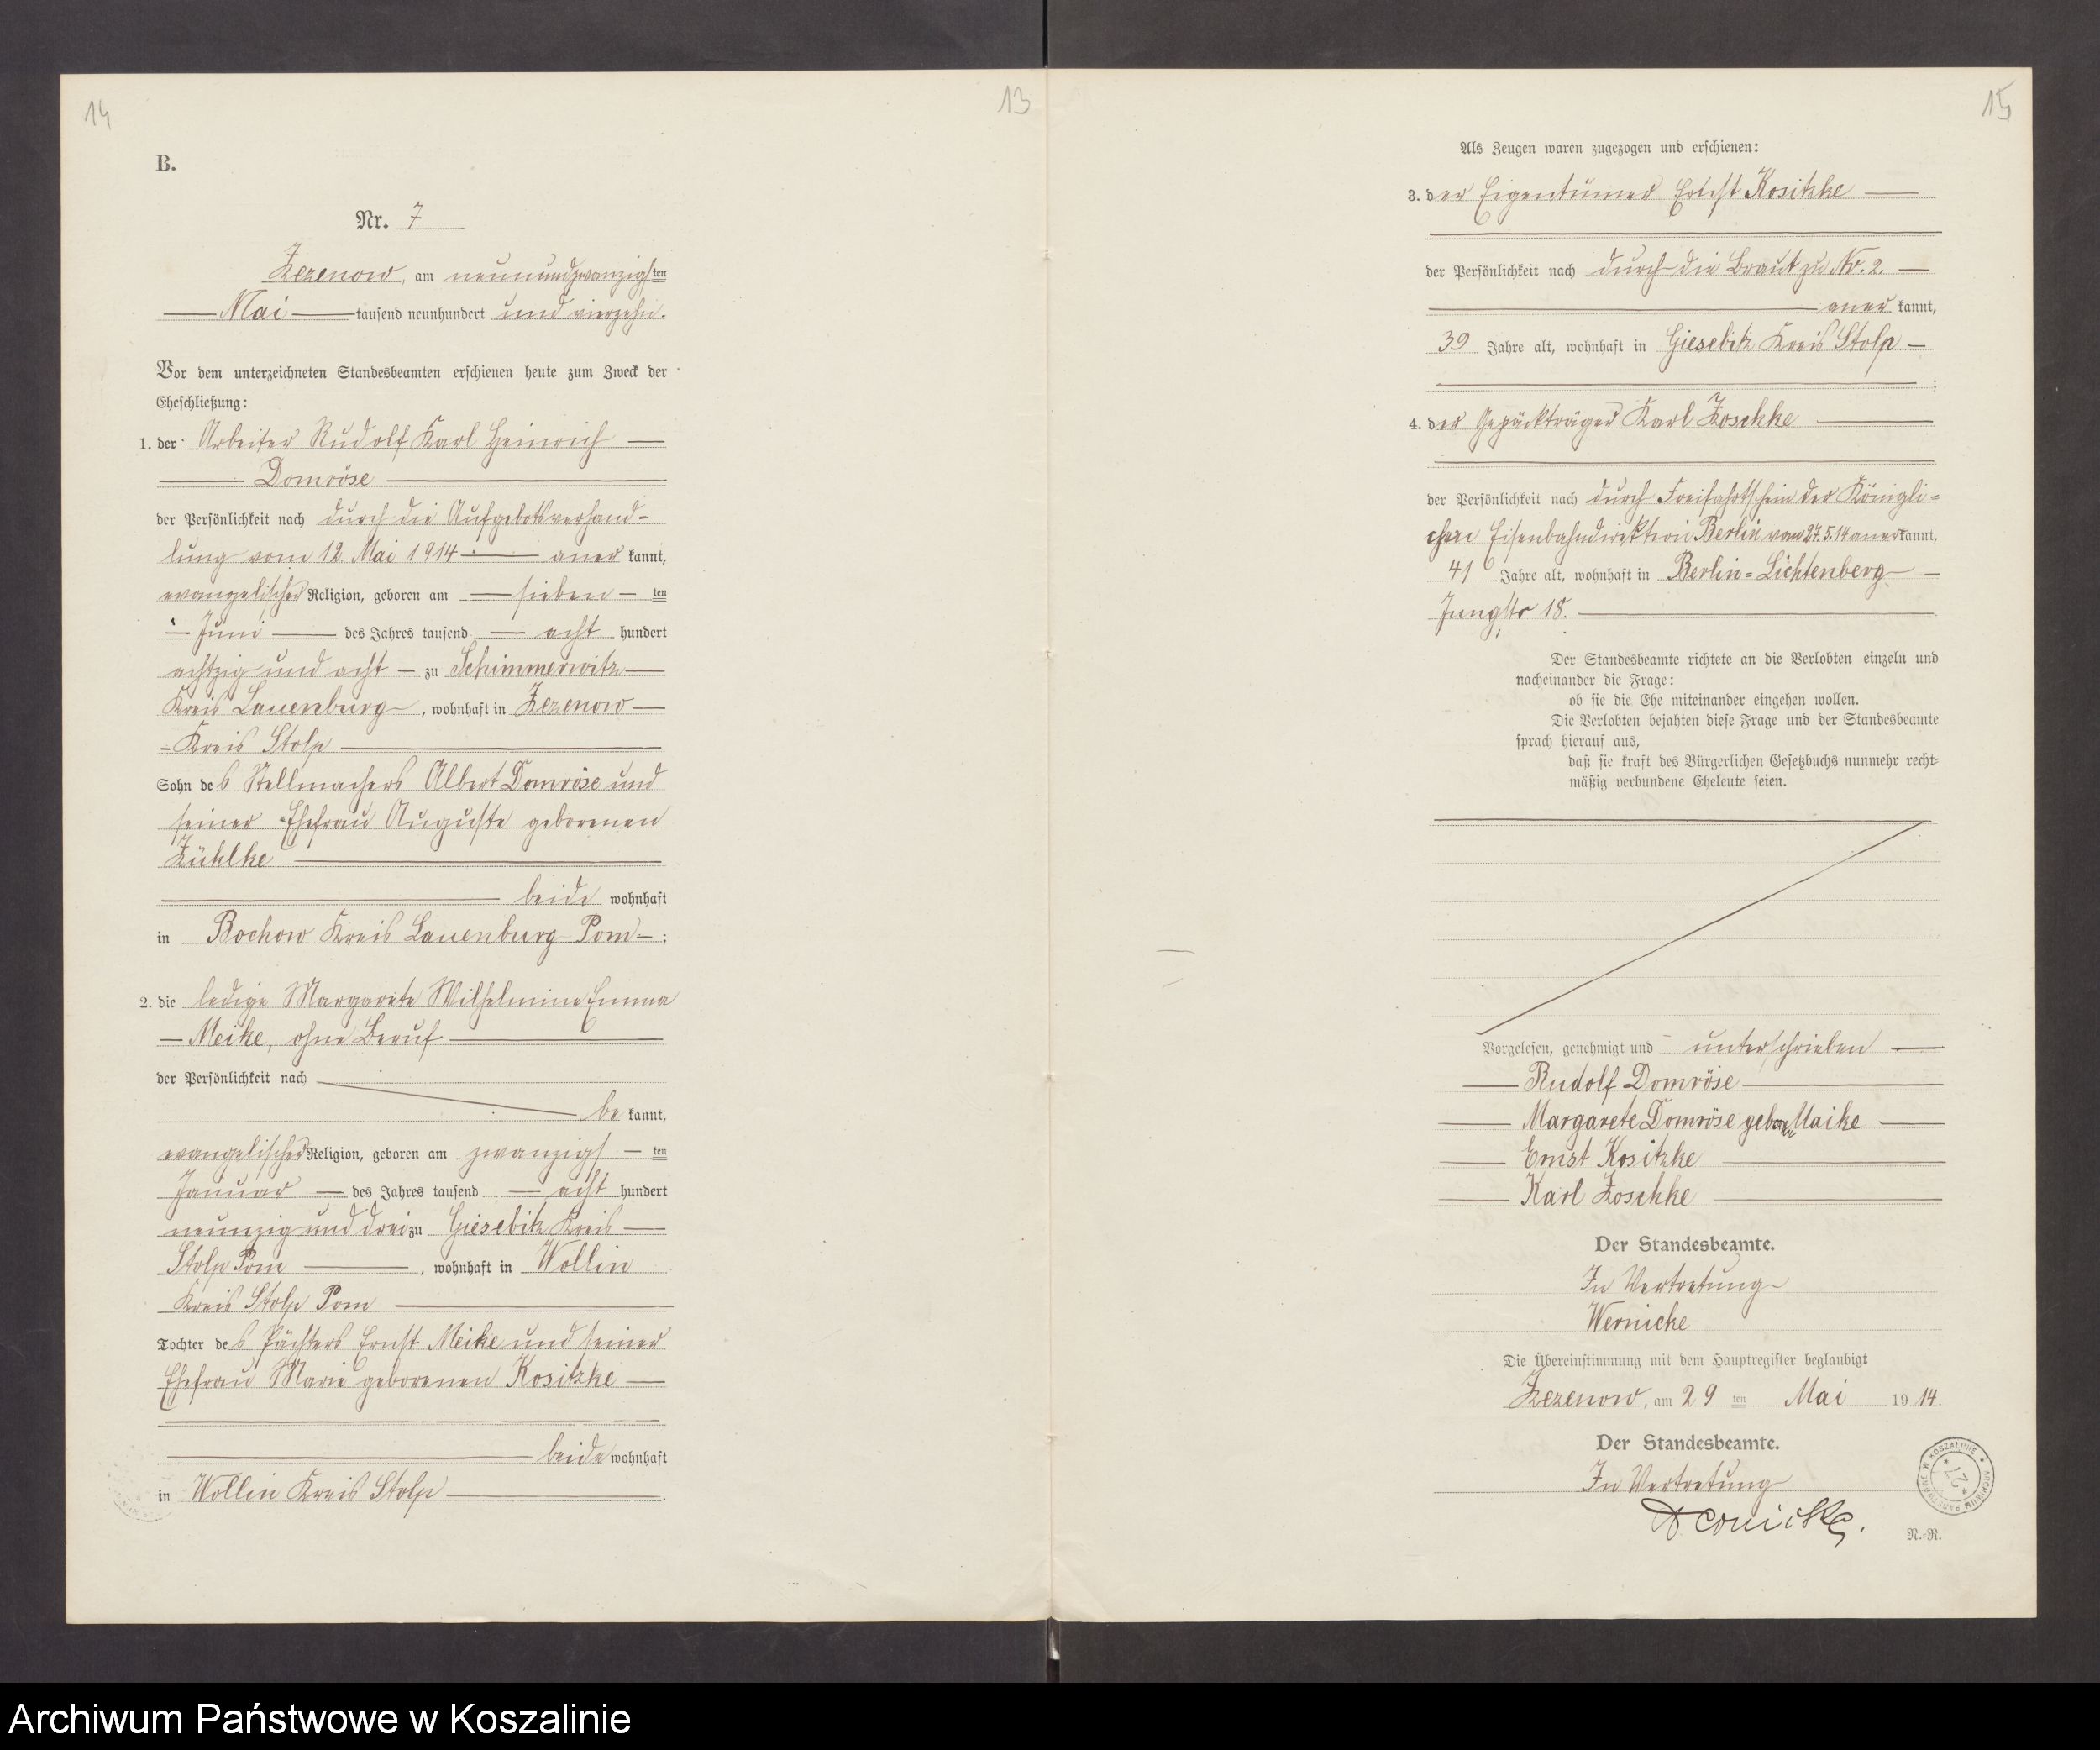 14
13
B.
Nr. 7
Zezenow, am neunundzwanzigsten
Mai tausend neunhundert und vierzehn.
Vor dem unterzeichneten Standesbeamten erschienen heute zum Zweck der
Eheschließung:
1. der Arbeiter Rudolf Karl Heinrich
Domröse
der Persönlichkeit nach durch die Aufgebotsverhand-
lung vom 12. Mai 1914 aner kannt,
evangelischer Religion, geboren am sieben ten
Juni des Jahres tausend acht hundert
achtzig und acht zu Schimmerwitz
Kreis Lauenburg, wohnhaft in Zezenow
Kreis Stolp
Sohn des Stellmachers Albert Domröse und
seiner Ehefrau Auguste geborenen
Zühlke
beide wohnhaft
in Bochow Kreis Lauenburg Pom ;
2. die ledige Margarete Wilhelmine Emma
Meike, ohne Beruf
der Persönlichkeit nach
be kannt,
evangelischer Religion, geboren am zwanzigs ten
Januar des Jahres tausend acht hundert
neunzig und drei zu Giesebitz Kreis
Stolp Pom , wohnhaft in Wollin
Kreis Stolp Pom
Tochter des Pächters Ernst Meike und seiner
Ehefrau Marie geborenen Kositzke
beide wohnhaft
in Wollin Kreis Stolp .
15
Als Zeugen waren zugezogen und erschienen:
3. der Eigentümer Ernst Kositzke
der Persönlichkeit nach durch die Braut zu Nr. 2.
aner kannt,
39 Jahre alt, wohnhaft in Giesebitz Kreis Stolp
;
4. der Gepäckträger Karl Zoschke
der Persönlichkeit nach durch Freifahrtschein der Königli=
chen Eisenbahndirektion Berlin vom 27.5.14 anerkannt,
41 Jahre alt, wohnhaft in Berlin=Lichtenberg
Jungstr 18.
Der Standesbeamte richtete an die Verlobten einzeln und
nacheinander die Frage:
ob sie die Ehe miteinander eingehen wollen.
Die Verlobten bejahten diese Frage und der Standesbeamte
sprach hierauf aus,
daß sie kraft des Bürgerlichen Gesetzbuchs nunmehr recht=
mäßig verbundene Eheleute seien.
Vorgelesen, genehmigt und unterschrieben
Rudolf Domröse
Margarete Domröse geboren Maike
Ernst Kositzke
Karl Zoschke
Der Standesbeamte.
In Vertretung
Wernicke
Die Übereinstimmung mit dem Hauptregister beglaubigt
Zezenow, am 29 ten Mai 1914.
Der Standesbeamte.
In Vertretung
Wernicke.
ARCHIWUM PAŃSTWOWE W KOSZALINIE
* 27 *
N.=R.
Archiwum Państwowe w Koszalinie